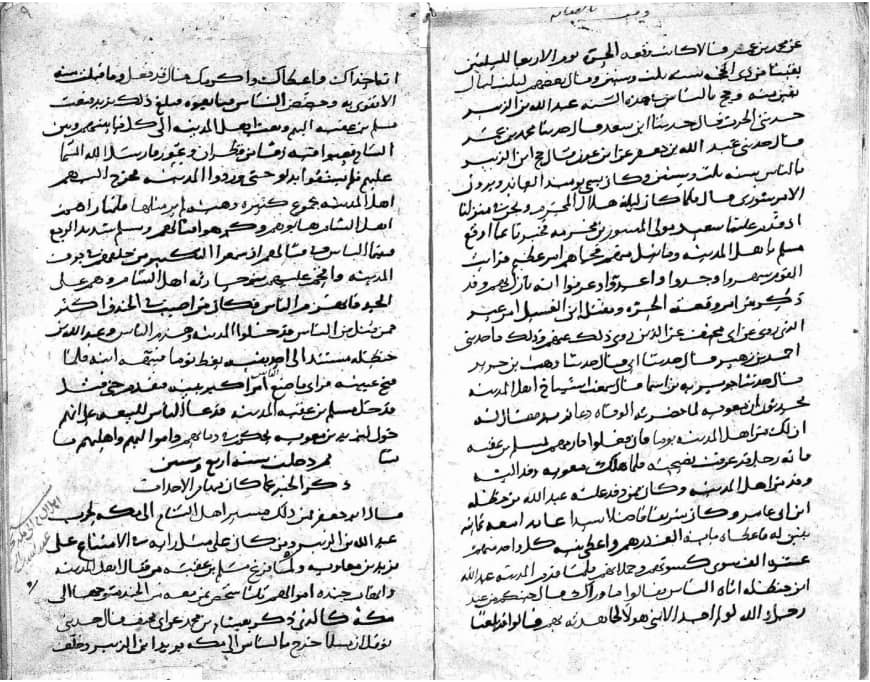 عن محمد بن عمر قال كانت وقعة الحرة يوم الاربعا لليلتين
بقيتا من ذي الحجة سنة ثلث وستين وقال بعضهم لثلث ليال
بقين منه وحج بالناس في هذه السنة عبد الله بن الزبير
حدثني الحرث قال حدثنا ابن سعد قال حدثنا محمد بن عمر
قال حدثني عبد الله بن جعفر عن ابن عون قال حج ابن الزبير
بالناس سنة ثلث وستين وكان يسمى يومئذ العائذ ويرون
الامر شورى قال فلما كان ليلة هلال المحرم ونحن في منزلنا
اذ قدم علينا سعيد مولى المسور بن مخرمة فخبرنا بما اوقع
مسلم باهل المدينة وما نيل منهم فجاهم امر عظيم فرايت
القوم شهروا وجدوا واعدوا وعرفوا انه نازل بهم وقد
ذكر من امر وقعة الحرة ومقتل ابن الغسيل امر غير
الذي روى عن ابي مخنف عن الذين روى ذلك عنهم وذلك ما حدثني
احمد بن زهير قال حدثنا ابي قال حدثنا وهب بن جرير
قال حدثنا جويرية بن اسما قال سمعت اشياخ اهل المدينة
يحدثون ان معوية لما حضرته الوفاة دعا يزيد فقال له
ان لك من اهل المدينة يوما فان فعلوا فارمهم بمسلم بن عقبة
فانه رجل قد عرفت نصيحته فلما هلك معوية وفد اليه
وفد من اهل المدينة وكان ممن وفد عليه عبد الله بن حنظلة
ابن ابي عامر وكان شريفا فاضلا سيدا عابدا معه ثمانية
بنين له فاعطاه ماية الف درهم واعطى بنيه كل واحد منهم
عشرة الف سوى كسوتهم وحملانهم فلما قدم المدينة عبد الله
ابن حنظلة اتاه الناس فقالوا ما وراك قال جيتكم من عند
رجل والله لو لم اجد الا بني هولا لجاهدته بهم قالوا قد بلغنا
انه اجداك واعطاك واكرمك قال قد فعل وما قبلت منه
الا لاتقوى به وحضض الناس فبايعوه فبلغ ذلك يزيد فبعث
مسلم بن عقبة اليهم وبعث اهل المدينة الى كل ما بينهم وبين
الشام فصبوا فيه زقا من قطران وعور فارسل الله السما
عليهم فلم يستقوا بدلو حتى وردوا المدينة فخرج اليهم
اهل المدينة بجموع كثيرة وهيئة لم ير مثلها فلما راهم
اهل الشام هابوهم وكرهوا قتالهم ومسلم شديد الوجع
فبينما الناس في قتالهم اذ سمعوا التكبير من خلفهم في جوف
المدينة واقحم عليهم بنو حارثة اهل الشام وهم على
الجد فانهزم الناس فكان من اصيب في الخندق اكثر
ممن قتل من الناس فدخلوا المدينة وهزم الناس وعبد الله بن
حنظلة مستند الى احد بنيه يغط نوما فنبهه ابنه فلما
فتح عينيه فراى ما صنع الناس امر اكبر بنيه فتقدم حتى قتل
فدخل مسلم بن عقبة المدينة فدعا الناس للبيعة على انهم
خول ليزيد بن معوية يحكم في دمائهم واموالهم واهليهم ما
شا
ثم دخلت سنة اربع وستين
ذكر الخبر عما كان فيها من الاحداث
قال ابو جعفر فمن ذلك مسير اهل الشام الى مكة لحرب
عبد الله بن الزبير ومن كان على مثل رايه في الامتناع على
يزيد بن معاوية ولما فرغ مسلم بن عقبة من قتال اهل المدينة
وانهاب جنده اموالهم ثلثا شخص بمن معه من الجند متوجها الى
مكة كالذي ذكر هشام بن محمد عن ابي مخنف قال حدثني
نوفل ان مسلما خرج بالناس الى مكة يريد ابن الزبير وخلف